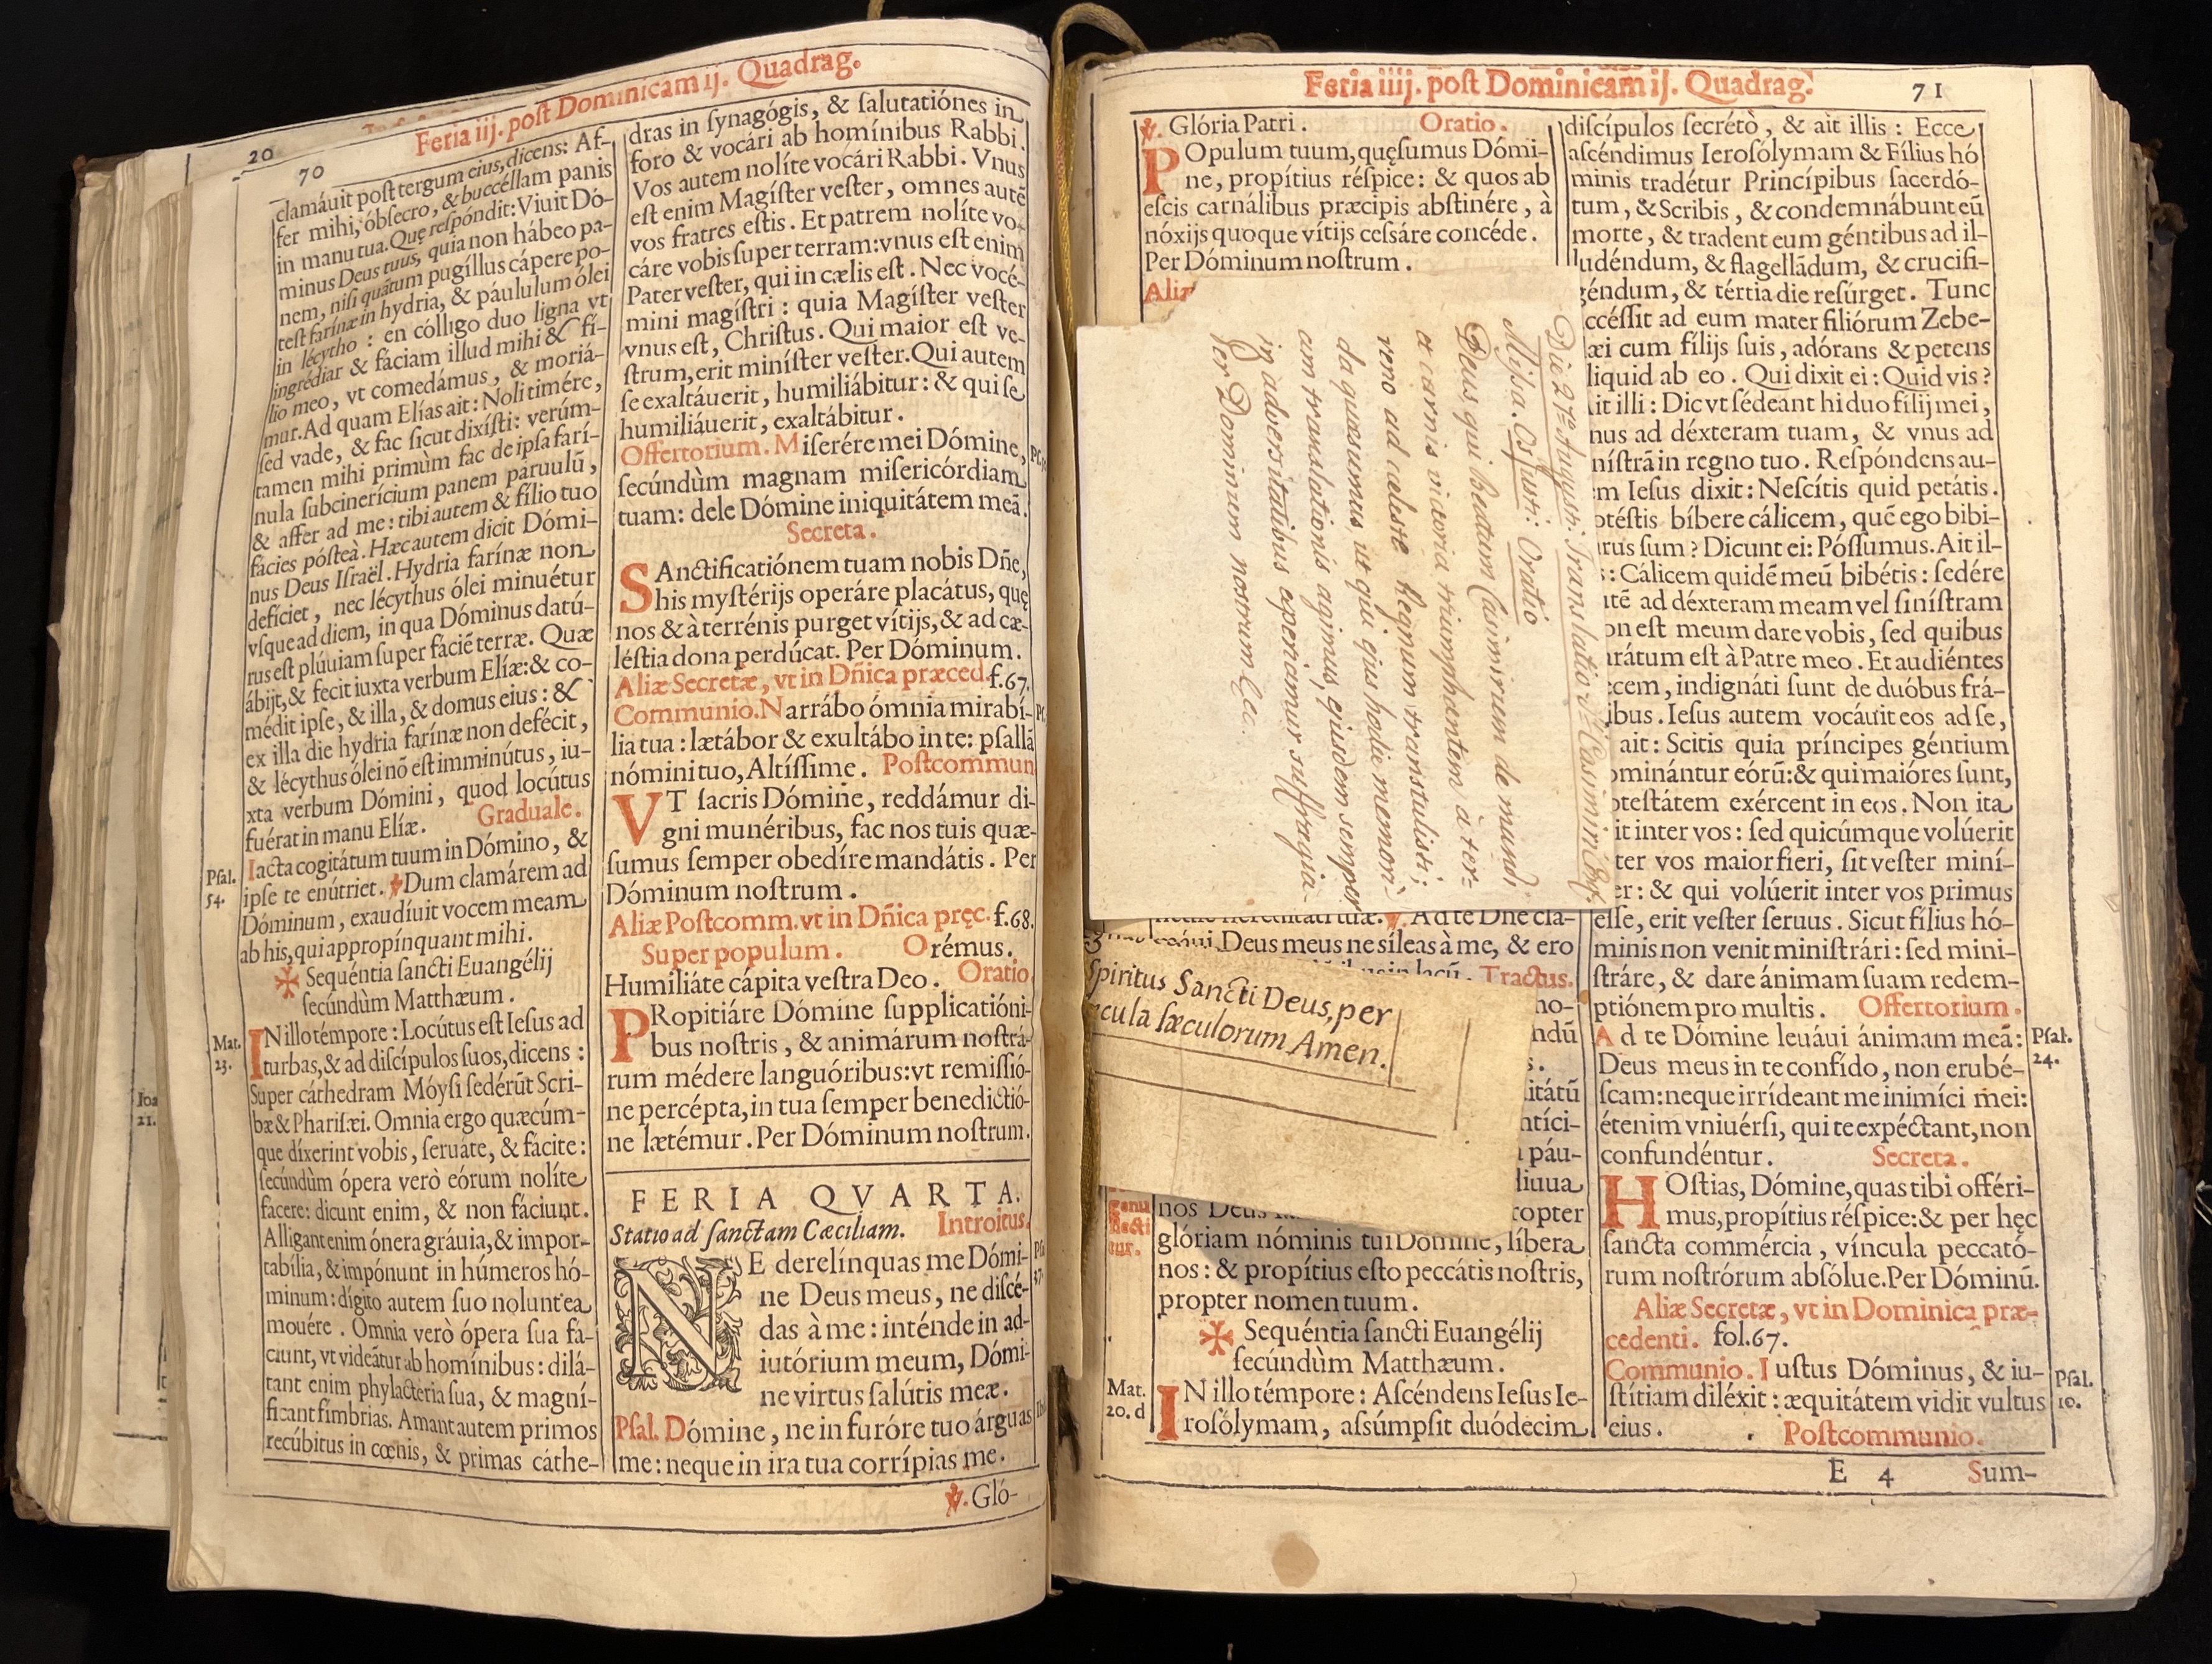 Feria iij. post Dominicam ij. Quadrag.
20
70
clamáuit post tergum eius, dicens: Af-
fer mihi, óbsecro, & buccéllam panis
in manu tua. Quę respóndit: Viuit Dó-
minus Deus tuus, quia non hábeo pa-
nem, nisi quãtum pugíllus cápere po-
test farínæ in hydria, & páululum ólei
in lécytho: en cólligo duo ligna vt
ingrédiar & fáciam illud mihi & fí-
lio meo, vt comedámus, & moriá-
mur. Ad quam Elías ait: Noli timére,
sed vade, & fac sicut dixísti: verúm-
tamen mihi primùm fac de ipsa farí-
nula subcinerícium panem paruulũ,
& affer ad me: tibi autem & fílio tuo
fácies pósteà. Hæc autem dicit Dómi-
nus Deus Israël. Hydria farínæ non
defíciet, nec lécythus ólei minuétur
vsque ad diem, in qua Dóminus datú-
rus est plúuiam super fáciẽ terræ. Quæ
ábijt, & fecit iuxta verbum Elíæ: & co-
médit ipse, & illa, & domus eius: &
ex illa die hydria farínæ non defécit,
& lécythus ólei nõ est imminútus, iu-
xta verbum Dómini, quod locútus
fúerat in manu Elíæ. Graduale.
Psal. 54.
Iacta cogitátum tuum in Dómino, &
ipse te enútriet. ℣ Dum clamárem ad
Dóminum, exaudíuit vocem meam
ab his, qui appropínquant mihi.
✠ Sequéntia sancti Euangélij
secúndùm Matthæum.
Mat. 23.
IN illo témpore: Locútus est Iesus ad
turbas, & ad discípulos suos, dicens:
Super cáthedram Móysi sedérũt Scri-
bæ & Pharisæi. Omnia ergo quæcúm-
que díxerint vobis, seruáte, & fácite:
secúndùm ópera verò eórum nolíte
fácere: dicunt enim, & non fáciunt.
Alligant enim ónera gráuia, & impor-
tabília, & impónunt in húmeros hó-
minum: dígito autem suo nolunt ea
mouére. Omnia verò ópera sua fá-
ciunt, vt videãtur ab homínibus: dilá-
tant enim phylactéria sua, & magní-
ficant fímbrias. Amant autem primos
recúbitus in cœnis, & primas cáthe-
Ioa
21.
dras in synagógis, & salutatiónes in
foro & vocári ab homínibus Rabbi.
Vos autem nolíte vocári Rabbi. Vnus
est enim Magíster vester, omnes autẽ
vos fratres estis. Et patrem nolíte vo-
cáre vobis super terram: vnus est enim
Pater vester, qui in cælis est. Nec vocé-
mini magístri: quia Magíster vester
vnus est, Christus. Qui maior est ve-
strum, erit miníster vester. Qui autem
se exaltáuerit, humiliábitur: & qui se
humiliáuerit, exaltábitur.
Offertorium. Miserére mei Dómine,
secúndùm magnam misericórdiam
tuam: dele Dómine iniquitátem meã.
Secreta.
SAnctificatiónem tuam nobis Dñe,
his mystérijs operáre placátus, quę
nos & à terrénis purget vítijs, & ad cæ-
léstia dona perdúcat. Per Dóminum.
Aliæ Secretæ, vt in Dñica præced. f. 67.
Communio. Narrábo ómnia mirabí-
lia tua: lætábor & exultábo in te: psallã
nómini tuo, Altíssime. Postcommun
VT sacris Dómine, reddámur di-
gni munéribus, fac nos tuis quæ-
sumus semper obedíre mandátis. Per
Dóminum nostrum.
Aliæ Postcomm. vt in Dñica pręc. f. 68.
Super populum. Orémus.
Humiliáte cápita vestra Deo. Oratio
PRopitiáre Dómine supplicatióni-
bus nostris, & animárum nostrá-
rum médere languóribus: vt remissió-
ne percépta, in tua semper benedictió-
ne lætémur. Per Dóminum nostrum.
FERIA QVARTA.
Statio ad sanctam Cæciliam. Introitus.
NE derelínquas me Dómi-
ne Deus meus, ne discé-
das à me: inténde in ad-
iutórium meum, Dómi-
ne virtus salútis meæ.
Psal. Dómine, ne in furóre tuo árguas
me: neque in ira tua corrípias me.
℣. Gló-
Feria iiij. post Dominicam ij. Quadrag.
71
℣. Glória Patri. Oratio.
POpulum tuum, quęsumus Dómi-
ne, propítius réspice: & quos ab
escis carnálibus præcipis abstinére, à
nóxijs quoque vítijs cessáre concéde.
Per Dóminum nostrum.
Aliæ
Die 27ª Augusti: Translatio Sti Casimiri Cõf.
Missa. Os Justi: Oratio
Deus qui Beatum Casimirum de mundi
et carnis victoria triumphantem à ter-
reno ad cæleste Regnum transtulisti;
da quæsumus ut qui ejus hodie memori-
am translationis agimus, ejusdem semper
in adversitatibus experiamur suffragia.
Per Dominum nostrum &c.
℣. Ad te Dñe cla-
Deus meus ne síleas à me, & ero
lacũ. Tractus.
Spiritus Sancti Deus, per
cula sæculorum Amen.
no-
ndũ
s.
itátũ
ntíci-
páu-
diuua
ropter
nos Deus
glóriam nóminis tui Dómine, líbera
nos: & propítius esto peccátis nostris,
propter nomen tuum.
✠ Sequéntia sancti Euangélij
secúndùm Matthæum.
Mat. 20. d
IN illo témpore: Ascéndens Iesus Ie-
rosólymam, assúmpsit duódecim
discípulos secrétò, & ait illis: Ecce
ascéndimus Ierosólymam & Fílius hó
minis tradétur Princípibus sacerdó-
tum, & Scribis, & condemnábunt eũ
morte, & tradent eum géntibus ad il-
ludéndum, & flagellãdum, & crucifi-
géndum, & tértia die resúrget. Tunc
ccéssit ad eum mater filiórum Zebe-
æi cum fílijs suis, adórans & petens
liquid ab eo. Qui dixit ei: Quid vis?
it illi: Dic vt sédeant hi duo filij mei,
nus ad déxteram tuam, & vnus ad
nístrã in regno tuo. Respóndens au-
m Iesus dixit: Nescítis quid petátis.
otéstis bíbere cálicem, quẽ ego bibi-
rus sum? Dicunt ei: Póssumus. Ait il-
s: Cálicem quidẽ meũ bibétis: sedére
utẽ ad déxteram meam vel sinístram
on est meum dare vobis, sed quibus
arátum est à Patre meo. Et audiéntes
ecem, indignáti sunt de duóbus frá-
ibus. Iesus autem vocáuit eos ad se,
ait: Scitis quia príncipes géntium
ominántur eórũ: & qui maióres sunt,
otestátem exércent in eos. Non ita
it inter vos: sed quicúmque volúerit
ter vos maior fieri, sit vester miní-
er: & qui volúerit inter vos primus
esse, erit vester seruus. Sicut fílius hó-
minis non venit ministrári: sed mini-
stráre, & dare ánimam suam redem-
ptiónem pro multis. Offertorium.
Ad te Dómine leuáui ánimam meã:
Deus meus in te confído, non erubé-
scam: neque irrídeant me inimíci mei:
étenim vniuérsi, qui te expéctant, non
confundéntur. Secreta.
Psal. 24.
HOstias, Dómine, quas tibi offéri-
mus, propítius réspice: & per hęc
sancta commércia, víncula peccató-
rum nostrórum absólue. Per Dóminũ.
Aliæ Secretæ, vt in Dominica præ-
cedenti. fol. 67.
Communio. Iustus Dóminus, & iu-
stítiam diléxit: æquitátem vidit vultus
eius. Postcommunio.
Psal. 10.
E 4 Sum-